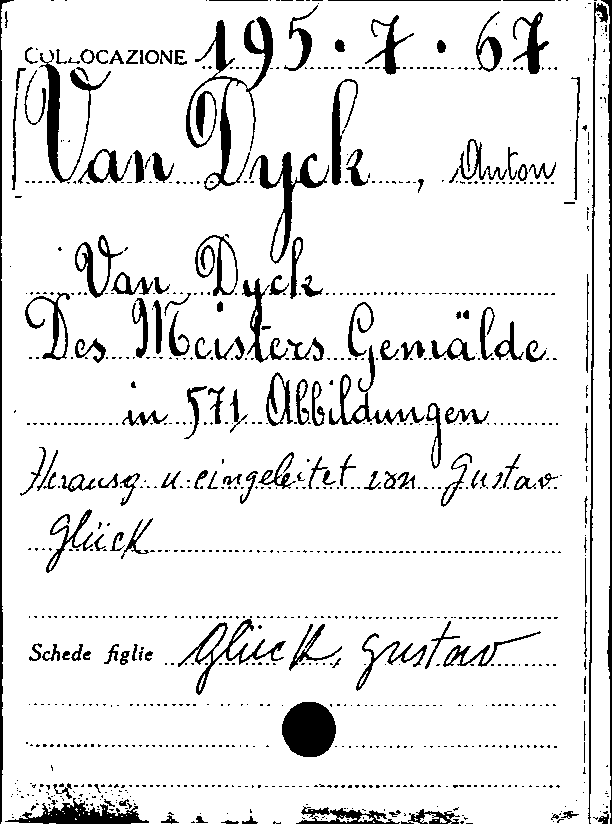 COLLOCAZIONE 195.7.67
[Van Dyck, Anton]
Van Dyck
Des Meisters Gemälde
in 571 Abbildungen
Herausg u. eingeleitet von Gustav
Glück
Schede figlie Glück, Gustav